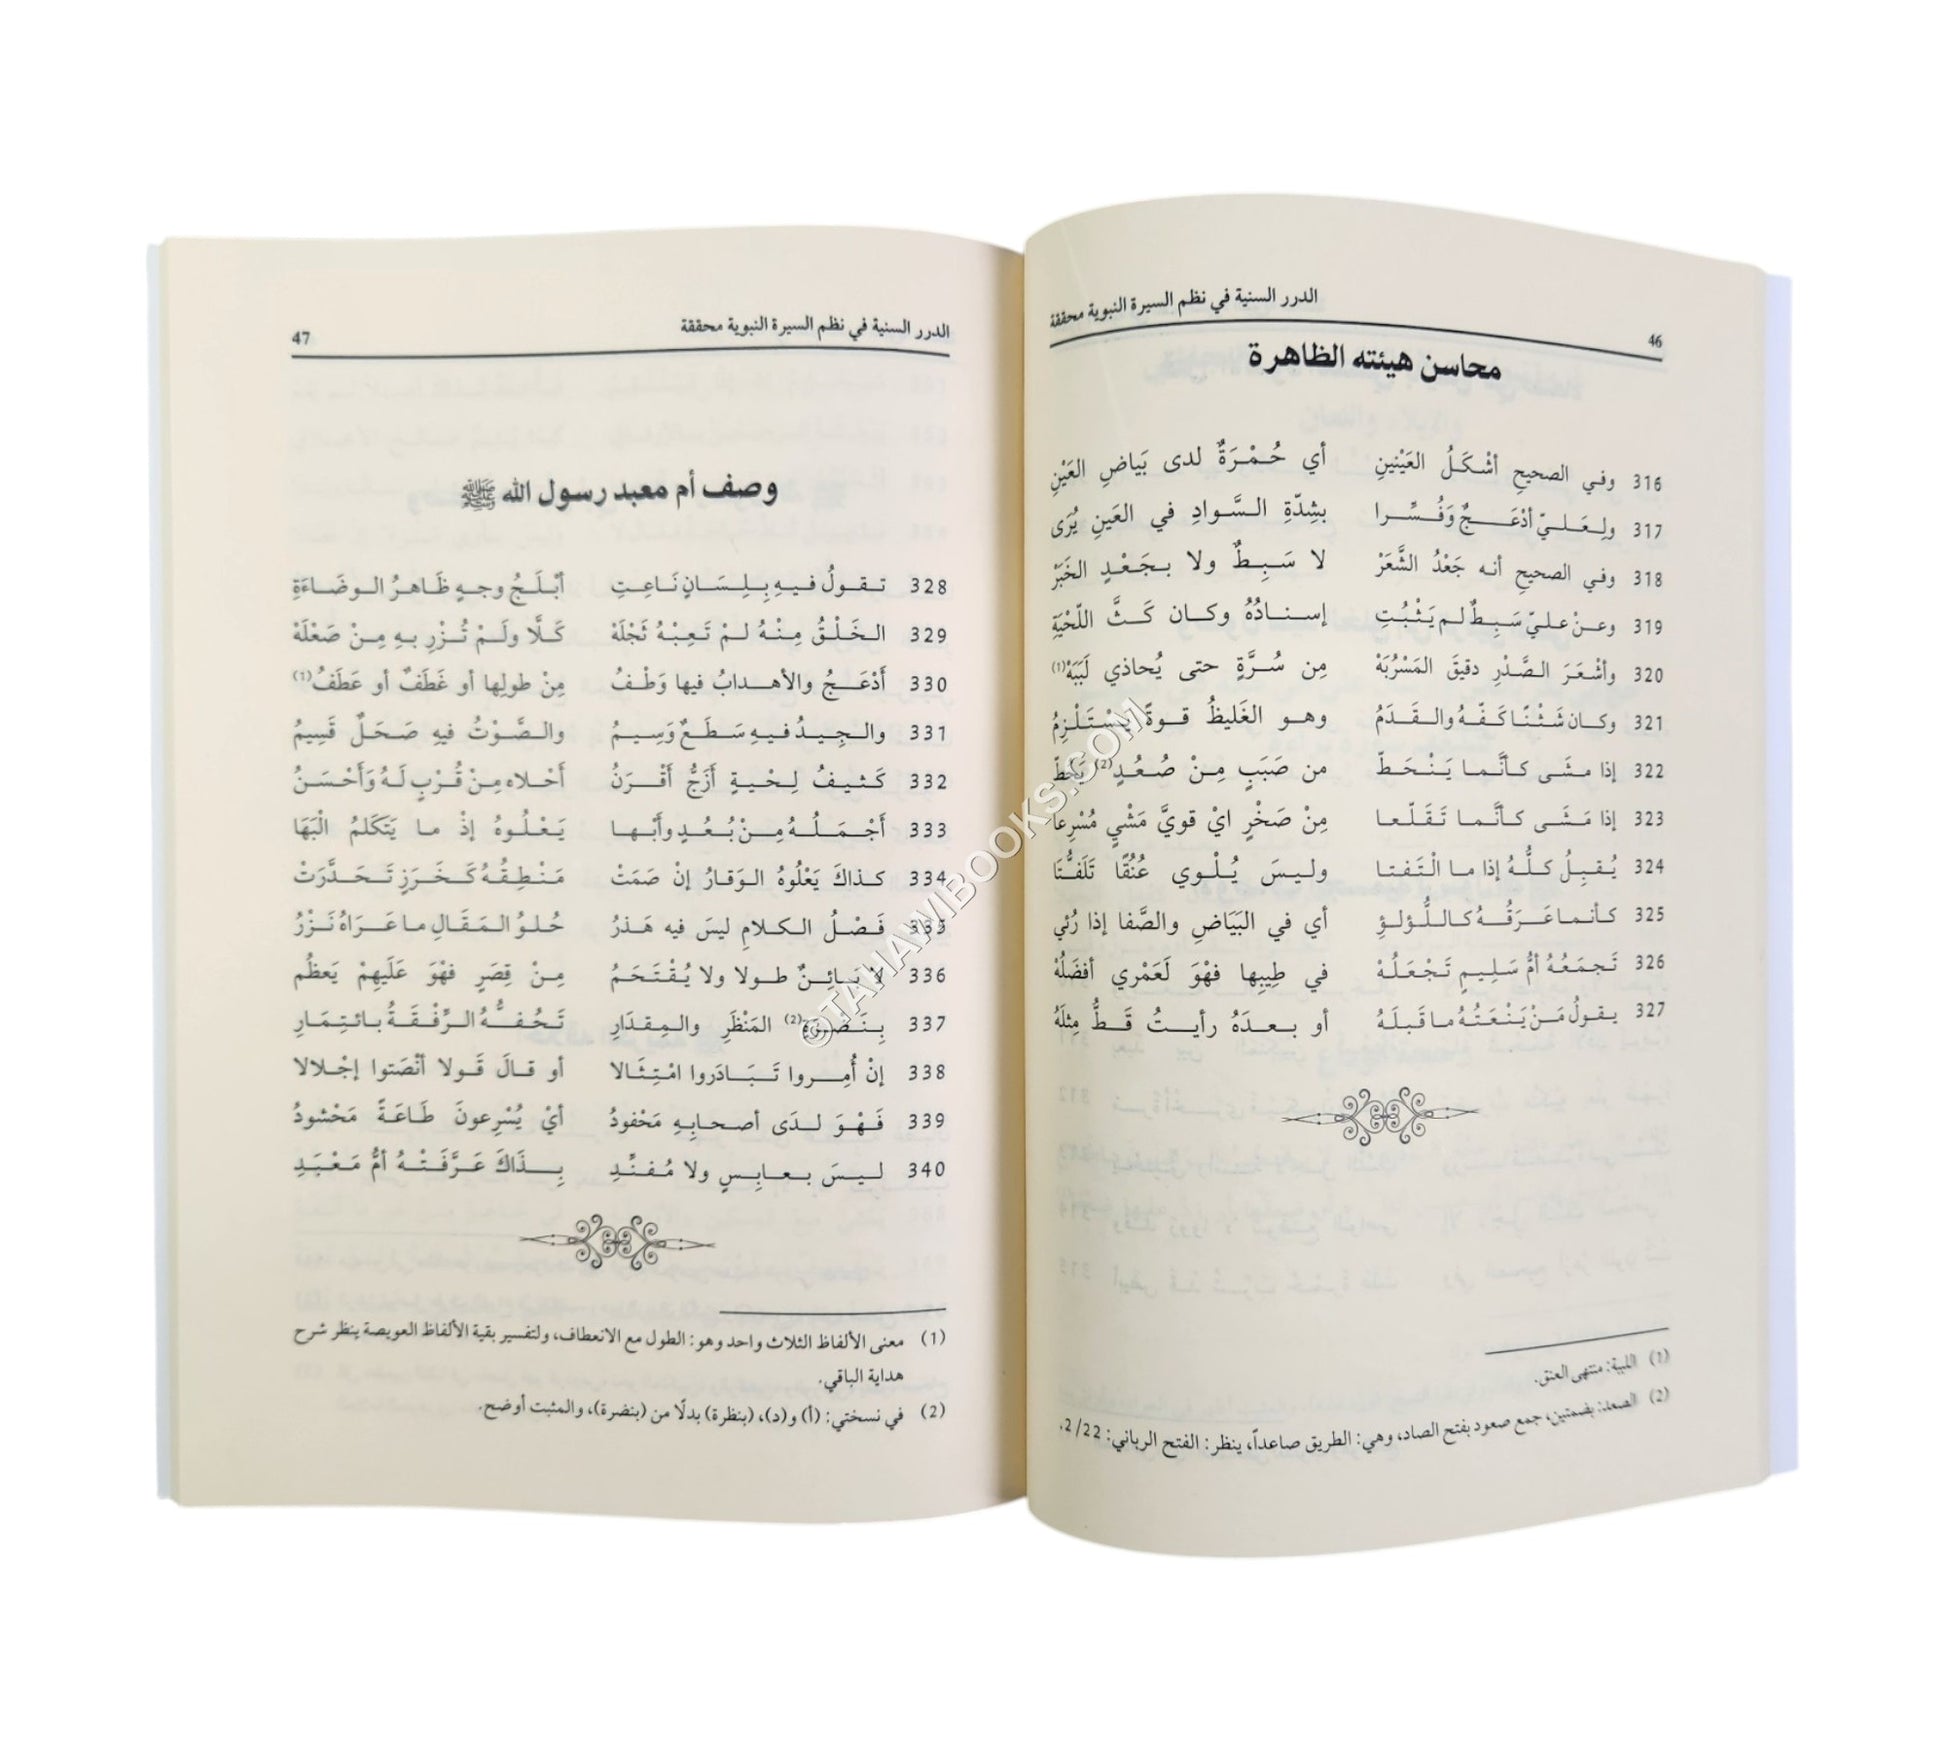 الدرر السنية في نظم السيرة النبوية محققة 46
محاسن هيئته الظاهرة
316 وفي الصحيحِ أشْكَلُ العَيْنينِ أي حُمْرَةٌ لدى بَياضِ العَيْنِ
317 ولِعَليّ أدْعَجٌ وَفُسِّرا بشِدّةِ السَّوادِ في العَينِ يُرَى
318 وفي الصحيحِ أنه جَعْدُ الشَّعَرْ لا سَبِطٌ ولا بجَعْدٍ الخَبَرْ
319 وعنْ عليّ سَبِطٌ لم يَثْبُتِ إسنادُهُ وكان كَثَّ اللّحْيَةِ
320 وأشْعَرَ الصَّدْرِ دقيقَ المَسْرُبَهْ مِن سُرَّةٍ حتى يُحاذي لَبَبَهْ(1)
321 وكان شَثْنًا كَفّهُ والقَدَمُ وهو الغَليظُ قوةً يسْتَلْزِمُ
322 إذا مشَى كأنَّما يَنْحَطّ من صَبَبٍ مِنْ صُعُدٍ(2) يَحُطّ
323 إذا مَشَى كأنَّما تَقَلّعا مِنْ صَخْرٍ ايْ قويَّ مَشْيٍ مُسْرِعا
324 يُقبِلُ كلُّهُ إذا ما الْتَفتا وليسَ يُلْوي عُنُقًا تَلَفُّتَا
325 كأنما عَرَقُهُ كاللُّؤلؤِ أي في البَيَاضِ والصَّفا إذا رُئي
326 تَجمَعُهُ أمُّ سَلِيمٍ تَجْعَلُهْ في طِيبِها فهْوَ لَعَمْري أفضَلُهْ
327 يقولُ مَنْ يَنْعَتُهُ ما قبلَهُ أو بعدَهُ رأيتُ قَطُّ مِثلَهُ
(1) اللببة: منتهى العنق.
(2) الصعد: بضمتين، جمع صعود بفتح الصاد، وهي: الطريق صاعداً، ينظر: الفتح الرباني: 2/22.
الدرر السنية في نظم السيرة النبوية محققة 47
وصف أم معبد رسول الله ﷺ
328 تقولُ فيهِ بِلِسَانٍ نَاعِتِ أبْلَجُ وجهٍ ظَاهرُ الوضَاءَةِ
329 الخَلْقُ مِنْهُ لمْ تَعِبْهُ ثَجْلَهْ كَلَّا ولَمْ تُزْرِ بهِ مِنْ صَعْلَهْ
330 أدْعَجُ والأهدابُ فيها وَطَفُ مِنْ طولِها أو غَطَفٌ أو عَطَفُ(1)
331 والجِيدُ فيهِ سَطَعٌ وَسِيمُ والصَّوْتُ فيهِ صَحَلٌ قَسِيمُ
332 كَثيفُ لِحْيةٍ أَزَجُّ أقْرَنُ أَحْلاه مِنْ قُرْبٍ لَهُ وَأَحْسَنُ
333 أَجْمَلُهُ مِنْ بُعُدٍ وأَبْها يَعْلُوهُ إذْ ما يَتَكلمُ الْبَهَا
334 كذاكَ يَعْلُوهُ الوَقارُ إنْ صَمَتْ مَنْطِقُهُ كَخَرَزٍ تَحَدَّرَتْ
335 فَصْلُ الكلامِ ليسَ فيه هَذرُ حُلوُ المَقَالِ ما عَرَاهُ نَزْرُ
336 لا بَائِنٌ طولا ولا يُقْتَحَمُ مِنْ قِصَرٍ فهْوَ عَلَيهِمْ يَعظُم
337 بِنَضْرَةِ(2) المَنْظَرِ والمِقدَارِ تَحُفُّهُ الرِّفْقَةُ بائتِمَارِ
338 إنْ أُمِروا تَبَادَروا امْتِثَالا أو قالَ قَولا أنْصَتوا إجْلالا
339 فَهْوَ لدَى أصحابِهِ مَحْفودُ أيْ يُسْرِعونَ طَاعَةً مَحْشودُ
340 ليسَ بعابِسٍ ولا مُفنِّدِ بِذَاكَ عَرَّفَتْهُ أمُّ مَعْبَدِ
(1) معنى الألفاظ الثلاث واحد وهو: الطول مع الانعطاف، ولتفسير بقية الألفاظ العويصة ينظر شرح
هداية الباقي.
(2) في نسختي: (أ) و(د)، (بنظرة) بدلًا من (بنضرة)، والمثبت أوضح.
©TAHAWIBOOKS.COM